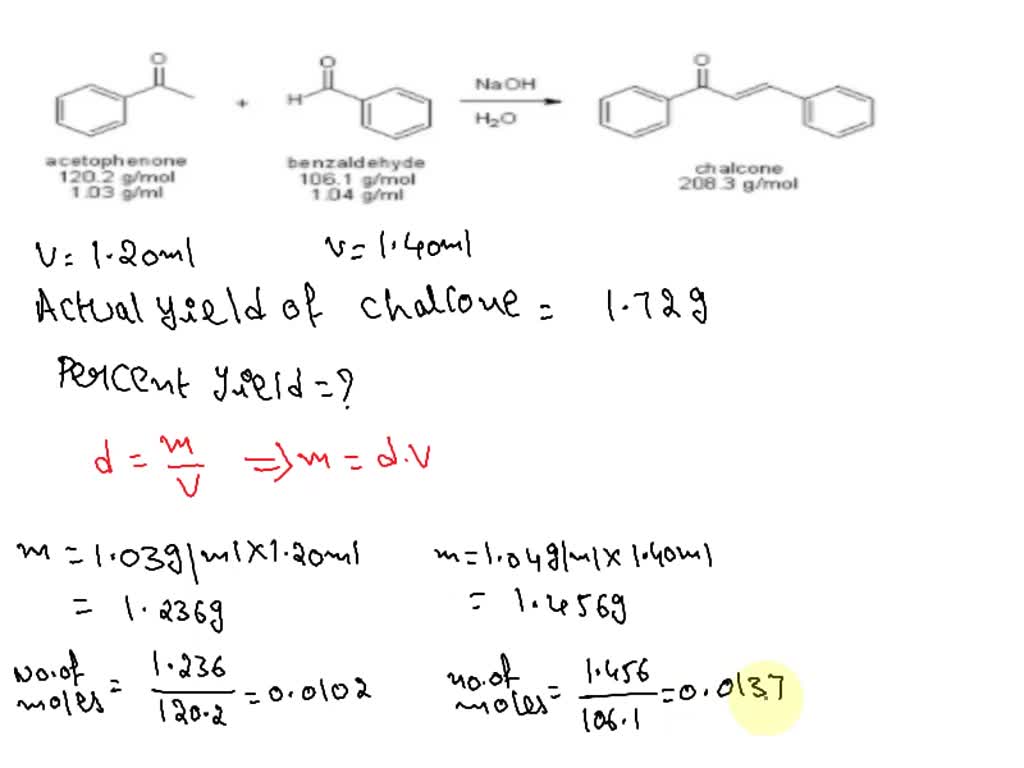 O O O
+ H NaOH
H₂O
acetophenone benzaldehyde chalcone
120.2 g/mol 106.1 g/mol 208.3 g/mol
1.03 g/ml 1.04 g/ml
V = 1.20ml V = 1.40ml
Actual yield of chalcone = 1.72g
Percent yield = ?
d = m/V ⇒ m = d.V
m = 1.03g/ml × 1.20ml m = 1.04g/ml × 1.40ml
= 1.236g = 1.456g
No. of moles = 1.236/120.2 = 0.0102 no. of moles = 1.456/106.1 = 0.0137